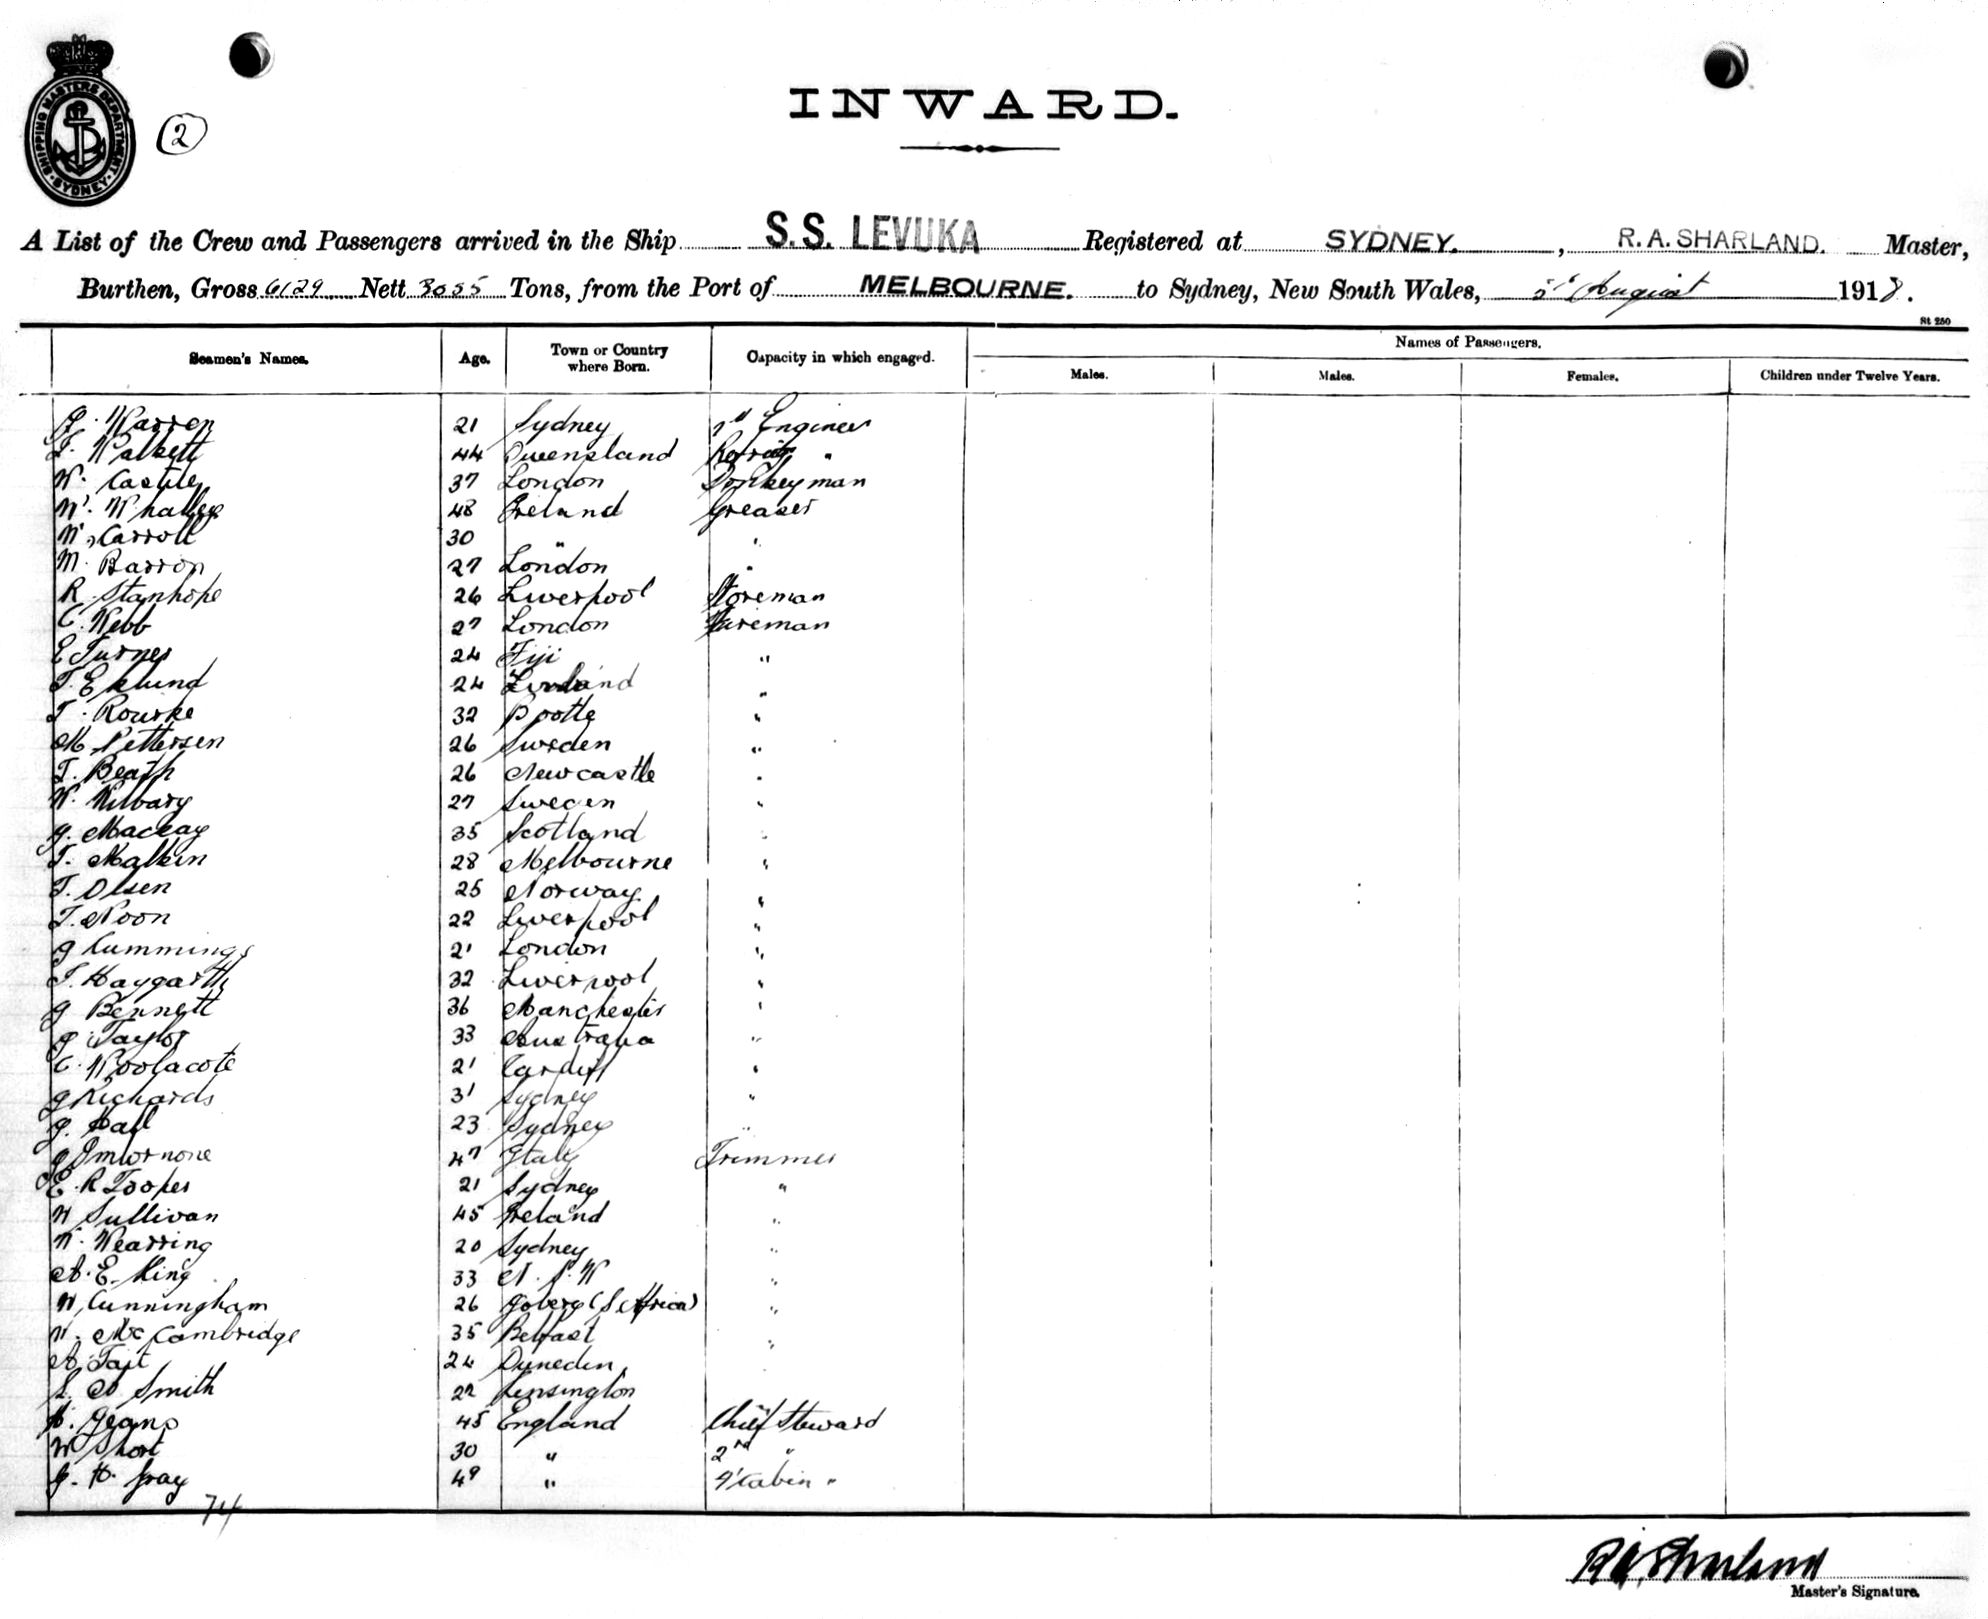 SHIPPING MASTERS DEPARTMENT
SYDNEY
2
INWARD.
A List of the Crew and Passengers arrived in the Ship S.S. LEVUKA Registered at SYDNEY, R. A. SHARLAND. Master,
Burthen, Gross 6129 Nett 3055 Tons, from the Port of MELBOURNE. to Sydney, New South Wales, 5th August 1918.
St 250
Seamen's Names. Age. Town or Country where Born. Capacity in which engaged. Names of Passengers.
Males. Males. Females. Children under Twelve Years.
Warren 21 Sydney Engineer
44 Queensland "
W. Castle 37 London Donkeyman
W. Whalley 48 Ireland Greaser
W. Carroll 30 " "
M. Barron 27 London "
R. Stanhope 26 Liverpool Storeman
C. Webb 27 London Fireman
E Turner 24 Fiji "
T. Eklund 24 "
T. Rourke 32 Bootle "
M. Pettersen 26 Sweden "
T. Beath 26 Newcastle "
W. 27 Sweden "
G. Mackay 35 Scotland "
T. Malkin 28 Melbourne "
T. Olsen 25 Norway "
T. Noon 22 Liverpool "
G Cummings 21 London "
T. Haygarth 32 Liverpool "
G Bennett 36 Manchester "
G. Taylor 33 Australia "
C. Woolacote 21 Cardiff "
G Richards 31 Sydney "
G. Hall 23 Sydney "
47 Italy Trimmer
E. R Tooper 21 Sydney "
W Sullivan 45 Ireland "
W. Wearring 20 Sydney "
A. E. King 33 N. S. W "
W. Cunningham 26 Joberg (S Africa) "
W. McCambridge 35 Belfast "
A. Tait 24 Dunedin "
S. A Smith 22 Kensington
H. Jeans 45 England Chief Steward
W Short 30 " 2nd "
G. H. Gray 49 " "
74
R A Sharland
Master's Signature.